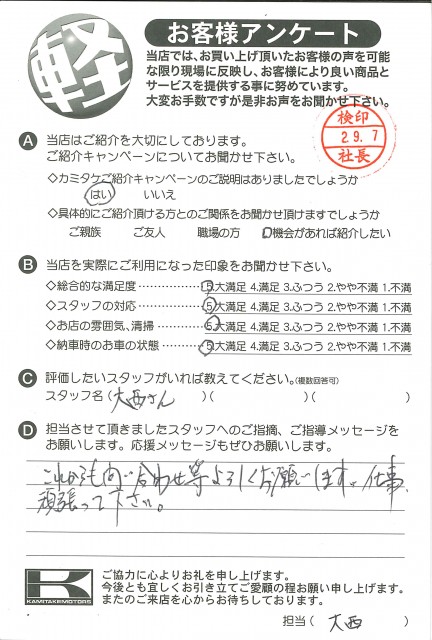 軽
お客様アンケート
当店では、お買い上げ頂いたお客様の声を可能
な限り現場に反映し、お客様により良い商品と
サービスを提供する事に努めています。
大変お手数ですが是非お声をお聞かせ下さい。
検印
29.7
社長
A 当店はご紹介を大切にしております。
ご紹介キャンペーンについてお聞かせ下さい。
◇カミタケご紹介キャンペーンのご説明はありましたでしょうか
はい いいえ
◇具体的にご紹介頂ける方とのご関係をお聞かせ頂けますでしょうか
ご親族 ご友人 職場の方 機会があれば紹介したい
B 当店を実際にご利用になった印象をお聞かせ下さい。
◇総合的な満足度 5.大満足 4.満足 3.ふつう 2.やや不満 1.不満
◇スタッフの対応 5.大満足 4.満足 3.ふつう 2.やや不満 1.不満
◇お店の雰囲気、清掃 5.大満足 4.満足 3.ふつう 2.やや不満 1.不満
◇納車時のお車の状態 5.大満足 4.満足 3.ふつう 2.やや不満 1.不満
C 評価したいスタッフがいれば教えてください。(複数回答可)
スタッフ名(大西さん )( )( )
D 担当させて頂きましたスタッフへのご指摘、ご指導メッセージを
お願いします。応援メッセージもぜひお願いします。
これからも問い合わせ等よろしくお願いします。仕事、
頑張って下さい。
K
KAMITAKEMOTORS
ご協力に心よりお礼を申し上げます。
今後とも宜しくお引き立てご愛顧の程お願い申し上げます。
またのご来店を心からお待ちしております。
担当( 大西 )